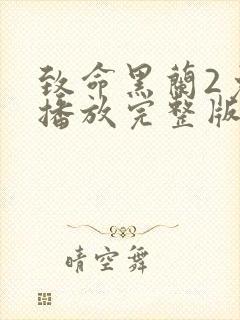 致命黑蘭2
播放完整版
晴空舞